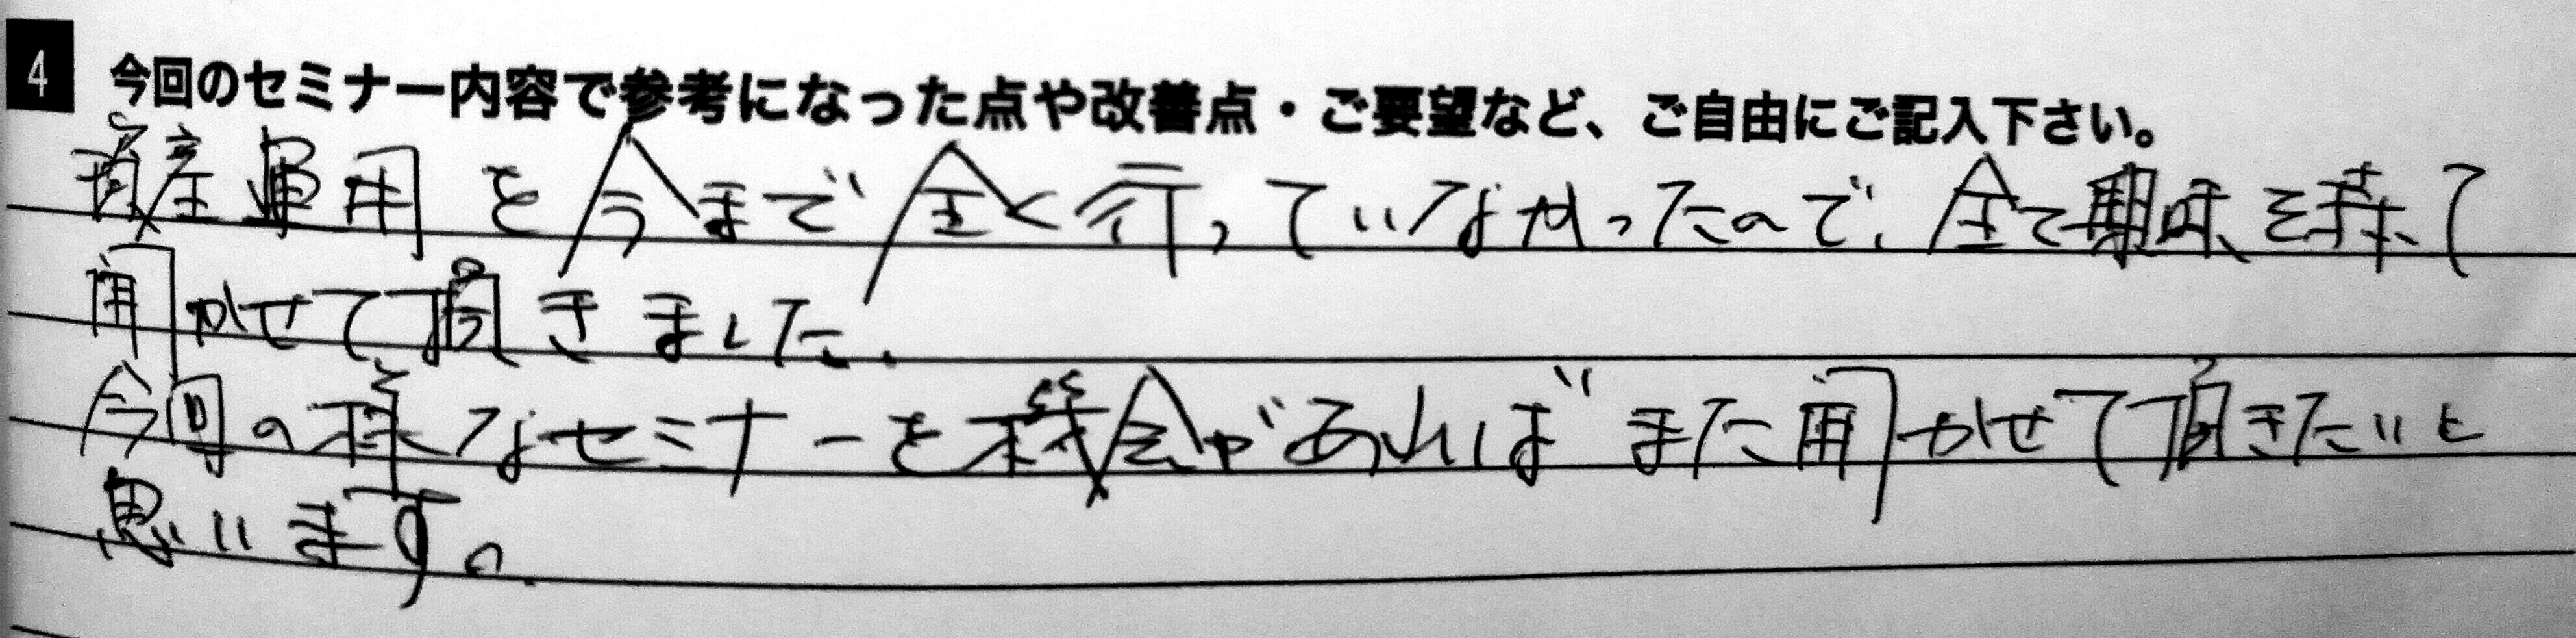 4 今回のセミナー内容で参考になった点や改善点・ご要望など、ご自由にご記入下さい。
資産運用を今まで全く行っていなかったので、全て興味を持って
聞かせて頂きました。
今回の様なセミナーを機会があればまた聞かせて頂きたいと
思います。